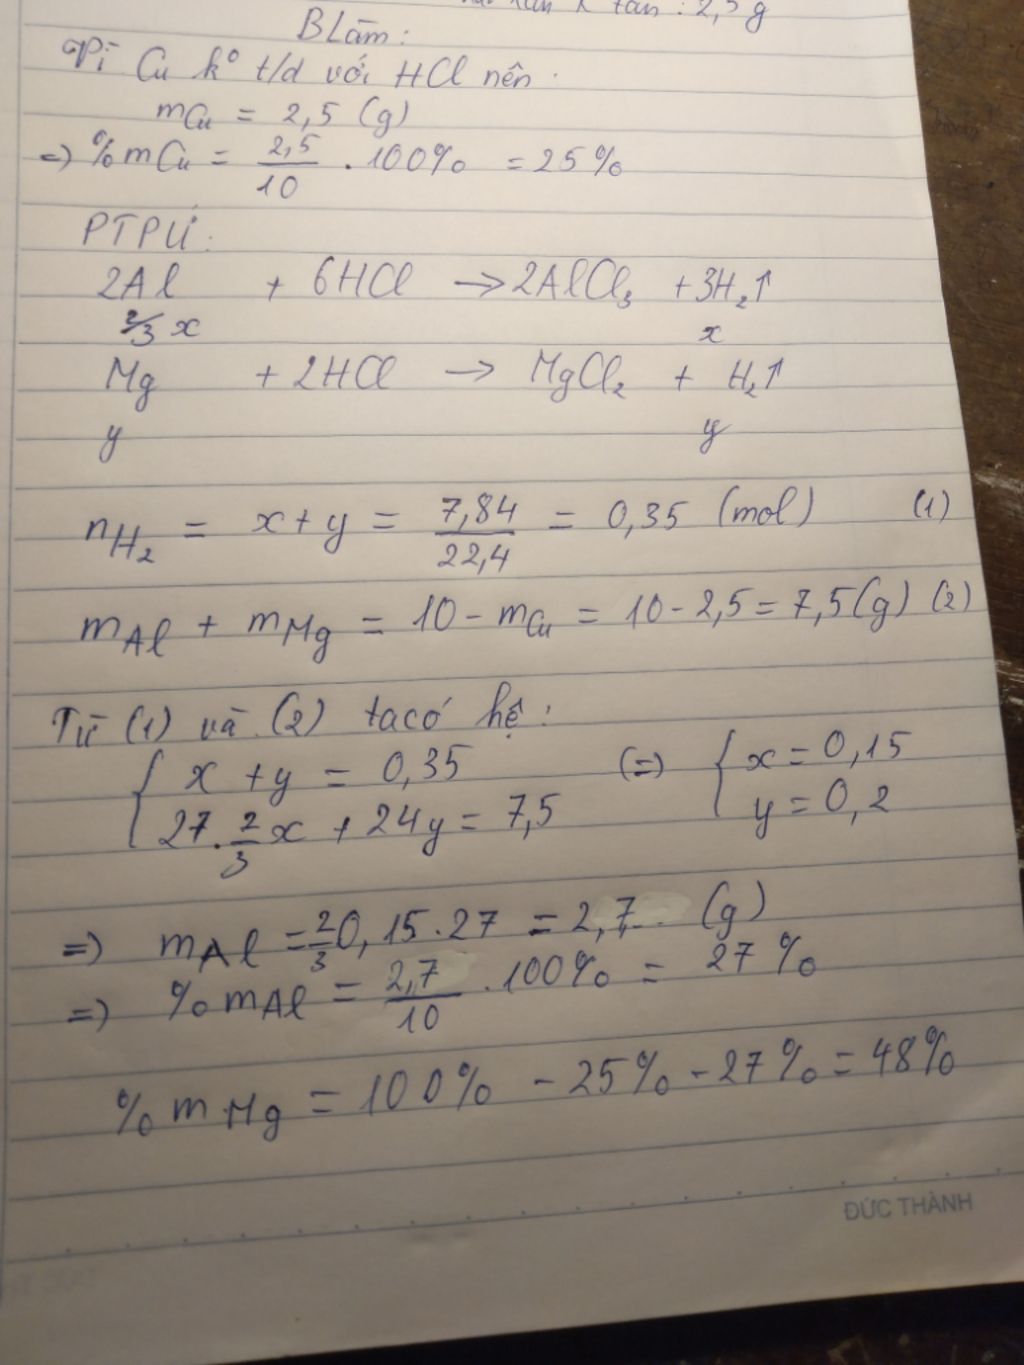 tan : 2,5 g
BLàm :
Vì Cu kº t/d với HCl nên
mCu = 2,5 (g)
=> %mCu = 2,5/10 . 100% = 25%
PTPƯ :
2Al + 6HCl → 2AlCl₃ + 3H₂↑
2/3 x x
Mg + 2HCl → MgCl₂ + H₂↑
y y
nH₂ = x + y = 7,84/22,4 = 0,35 (mol) (1)
mAl + mMg = 10 - mCu = 10 - 2,5 = 7,5(g) (2)
Từ (1) và (2) ta có hệ :
{ x + y = 0,35 (=) { x = 0,15
27 . 2/3 x + 24y = 7,5 y = 0,2
=> mAl = 2/3 0,15 . 27 = 2,7 (g)
=> %mAl = 2,7/10 . 100% = 27%
%mMg = 100% - 25% - 27% = 48%
ĐỨC THÀNH